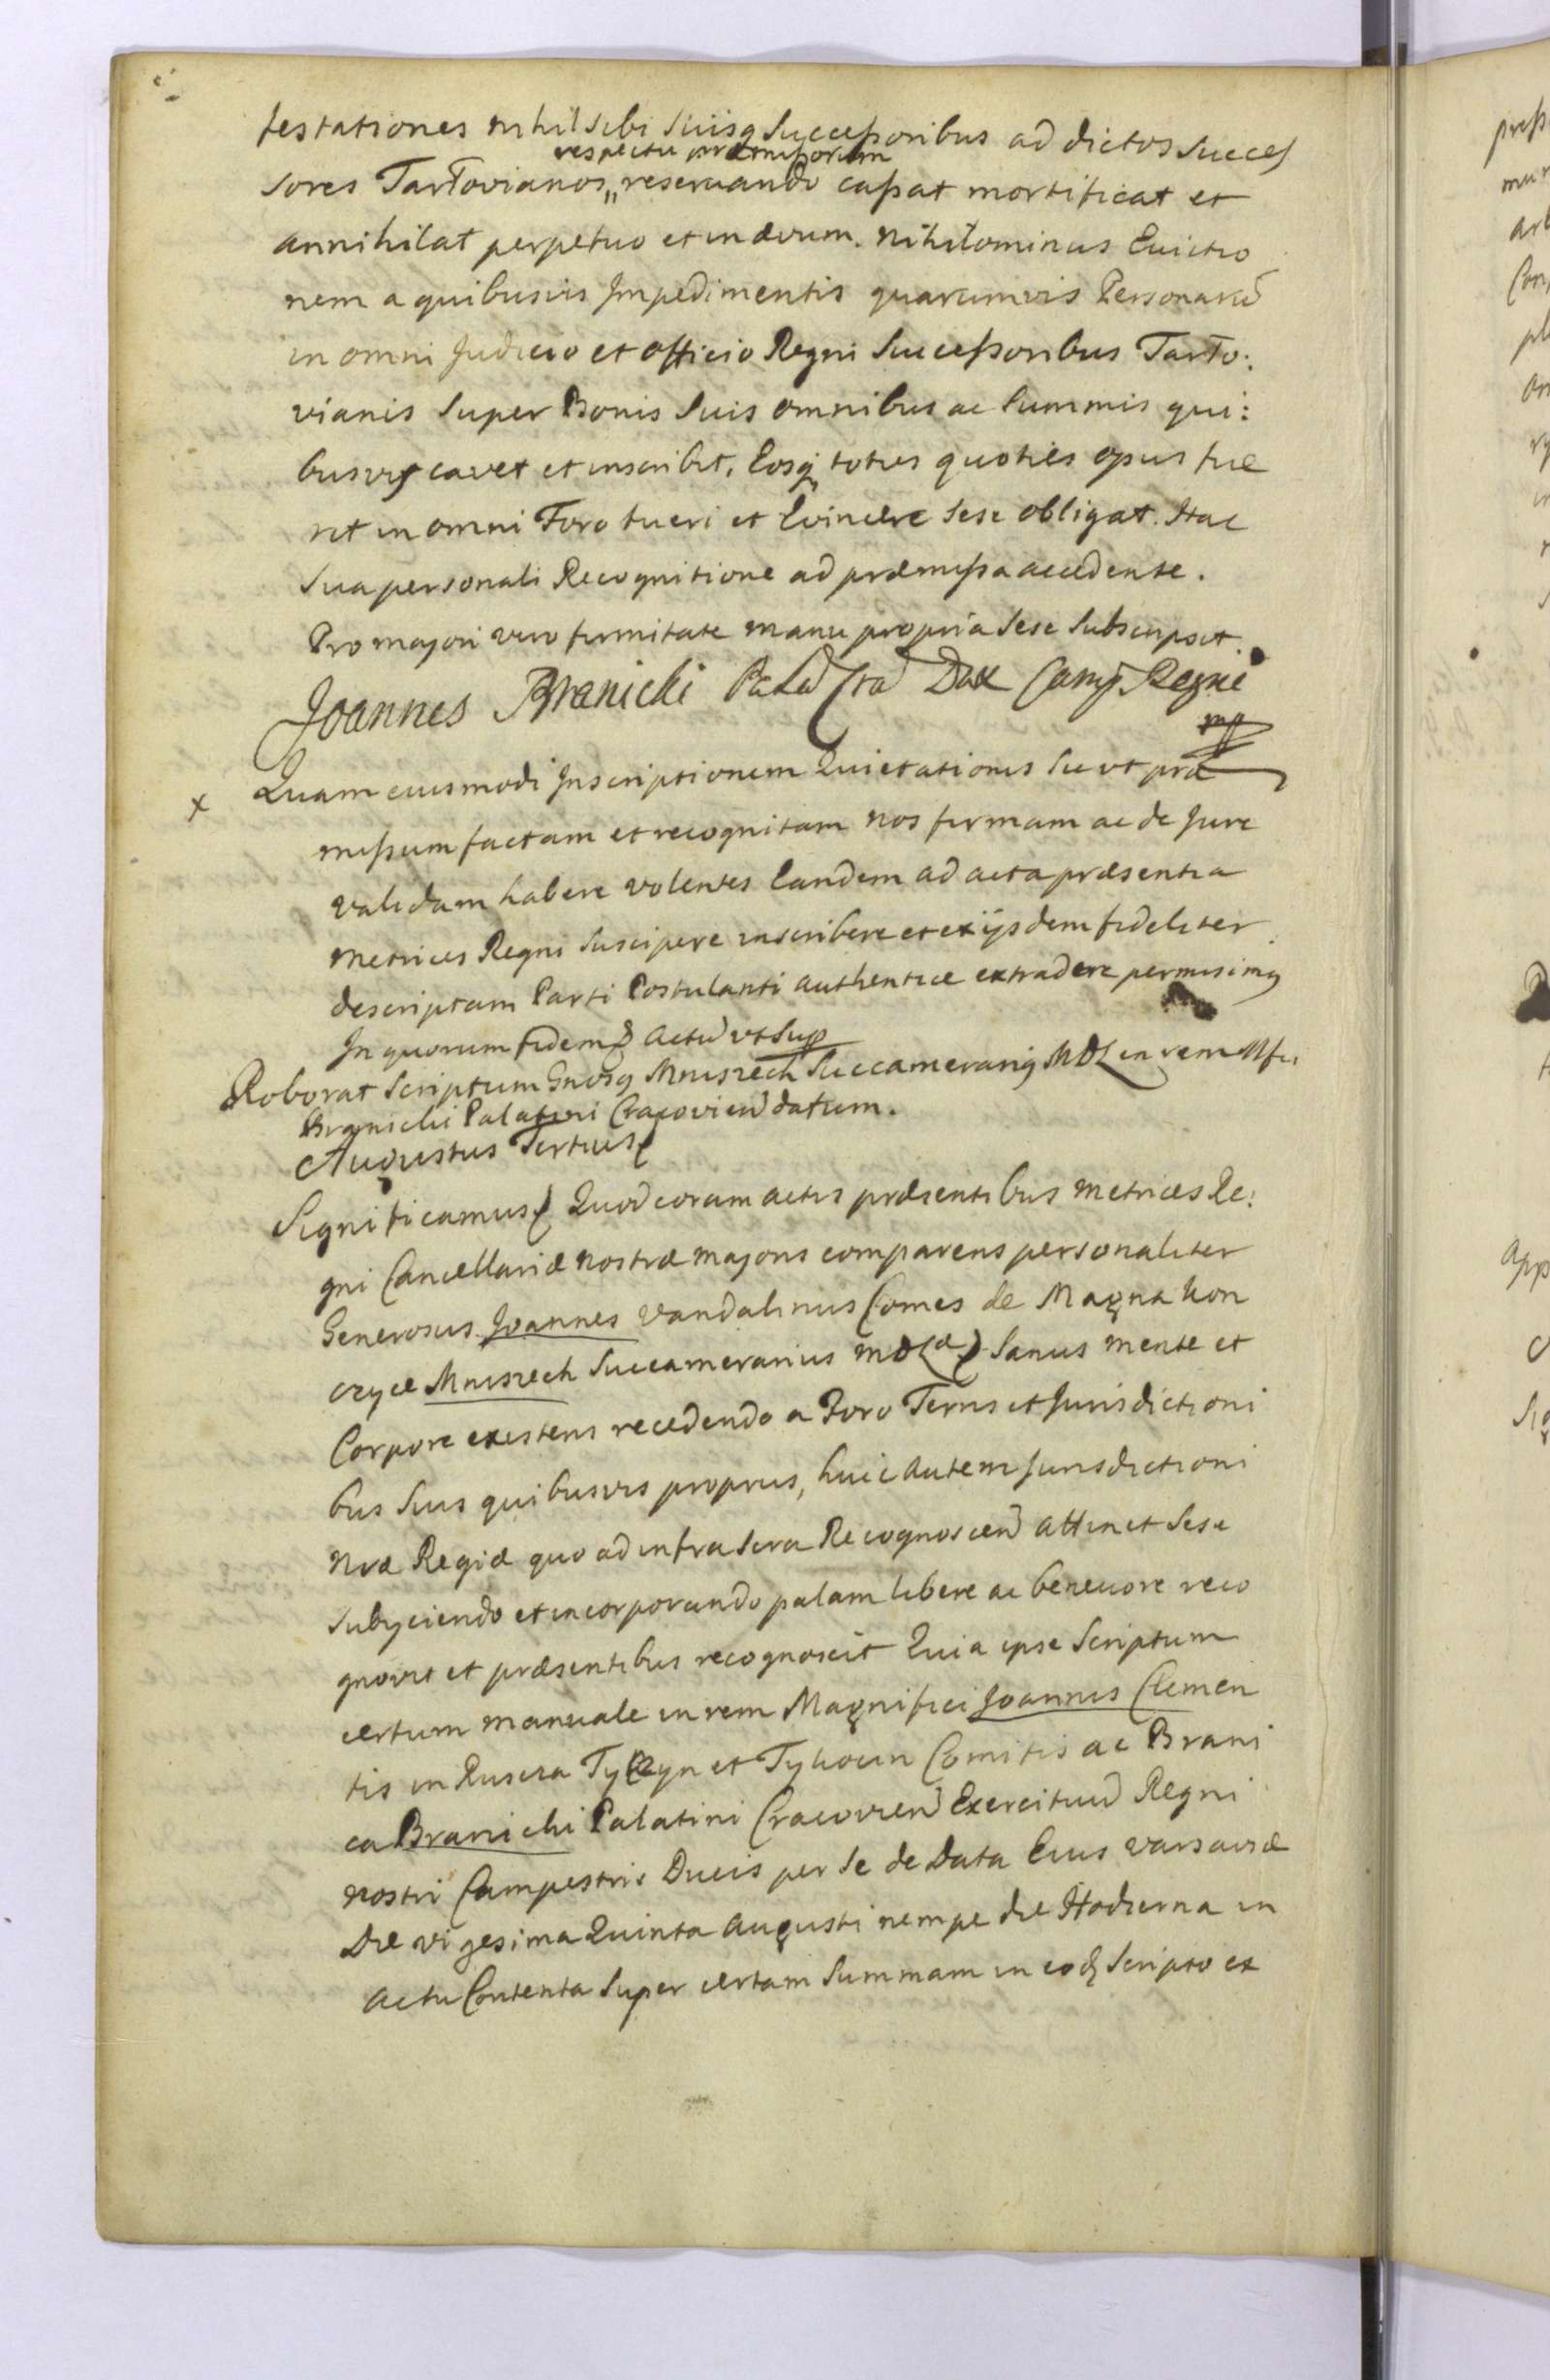 testationes nihil sibi suisq Successoribus ad dictos Succes
respectu præmissorum
sores Tarłovianos „ reservando cassat mortificat et
annihilat perpetuo et in ævum. Nihilominus Evictio
nem a quibusvis Impedimentis quarumvis Personarū
in omni Judicio et Officio Regni Successoribus Tarło:
vianis Super Bonis Suis omnibus ac Summis qui:
busvis cavet et inscribit, Eosq toties quoties opus fue
rit in omni Foro tueri et Evincere sese obligat. Hac
Sua personali Recognitione ad præmissa accedente.
Pro majori vero firmitate manu propria Sese Subscripsit.
Joannes Branicki Dux Camp Regni
mp
x Quam eiusmodi Inscriptionem Quietationis Sic ut præ
missum factam et recognitam nos firmam ac de Jure
validam habere volentes Eandem ad acta præsentia
Metrices Regni Suscipere inscribere et ex ijsdem fideliter
descriptam Parti Postulanti authentice extradere permisimq
In quorum fidem Actū ut Sup
Roborat Scriptum Gnosq Mniszech Succamerariq MDL in rem Mfci
Branicki Palatini Cracovien datum.
Augustus Tertius
Significamus Quod coram actis præsentibus Metrices Re:
gni Cancellariæ nostræ majoris comparens personaliter
Generosus Joannes Vandalinus Comes de Magna Kon
czyce Mniszech Succamerarius MDL Sanus mente et
Corpore existens recedendo a Foro Terris et Jurisdictioni
bus Suis quibusvis proprijs, huic autem Jurisdictioni
Nræ Regiæ quo ad infra Scra Recognoscen attinet Sese
Subyciendo et incorporando palam libere ac benevore reco
gnovit et præsentibus recognoscit Quia ipse Scriptum
certum manuale in rem Magnifici Joannis Clemen
tis in Ruscza Tyczyn et Tykocin Comitis ac Brani
ca Branicki Palatini Cracovien Exercituū Regni
nostri Campestris Ducis per Se de Data Eius Varsaviæ
Die vigesima Quinta Augusti nempe die Hodierna in
Actu Contenta Super certam Summam in eod Scripto ex